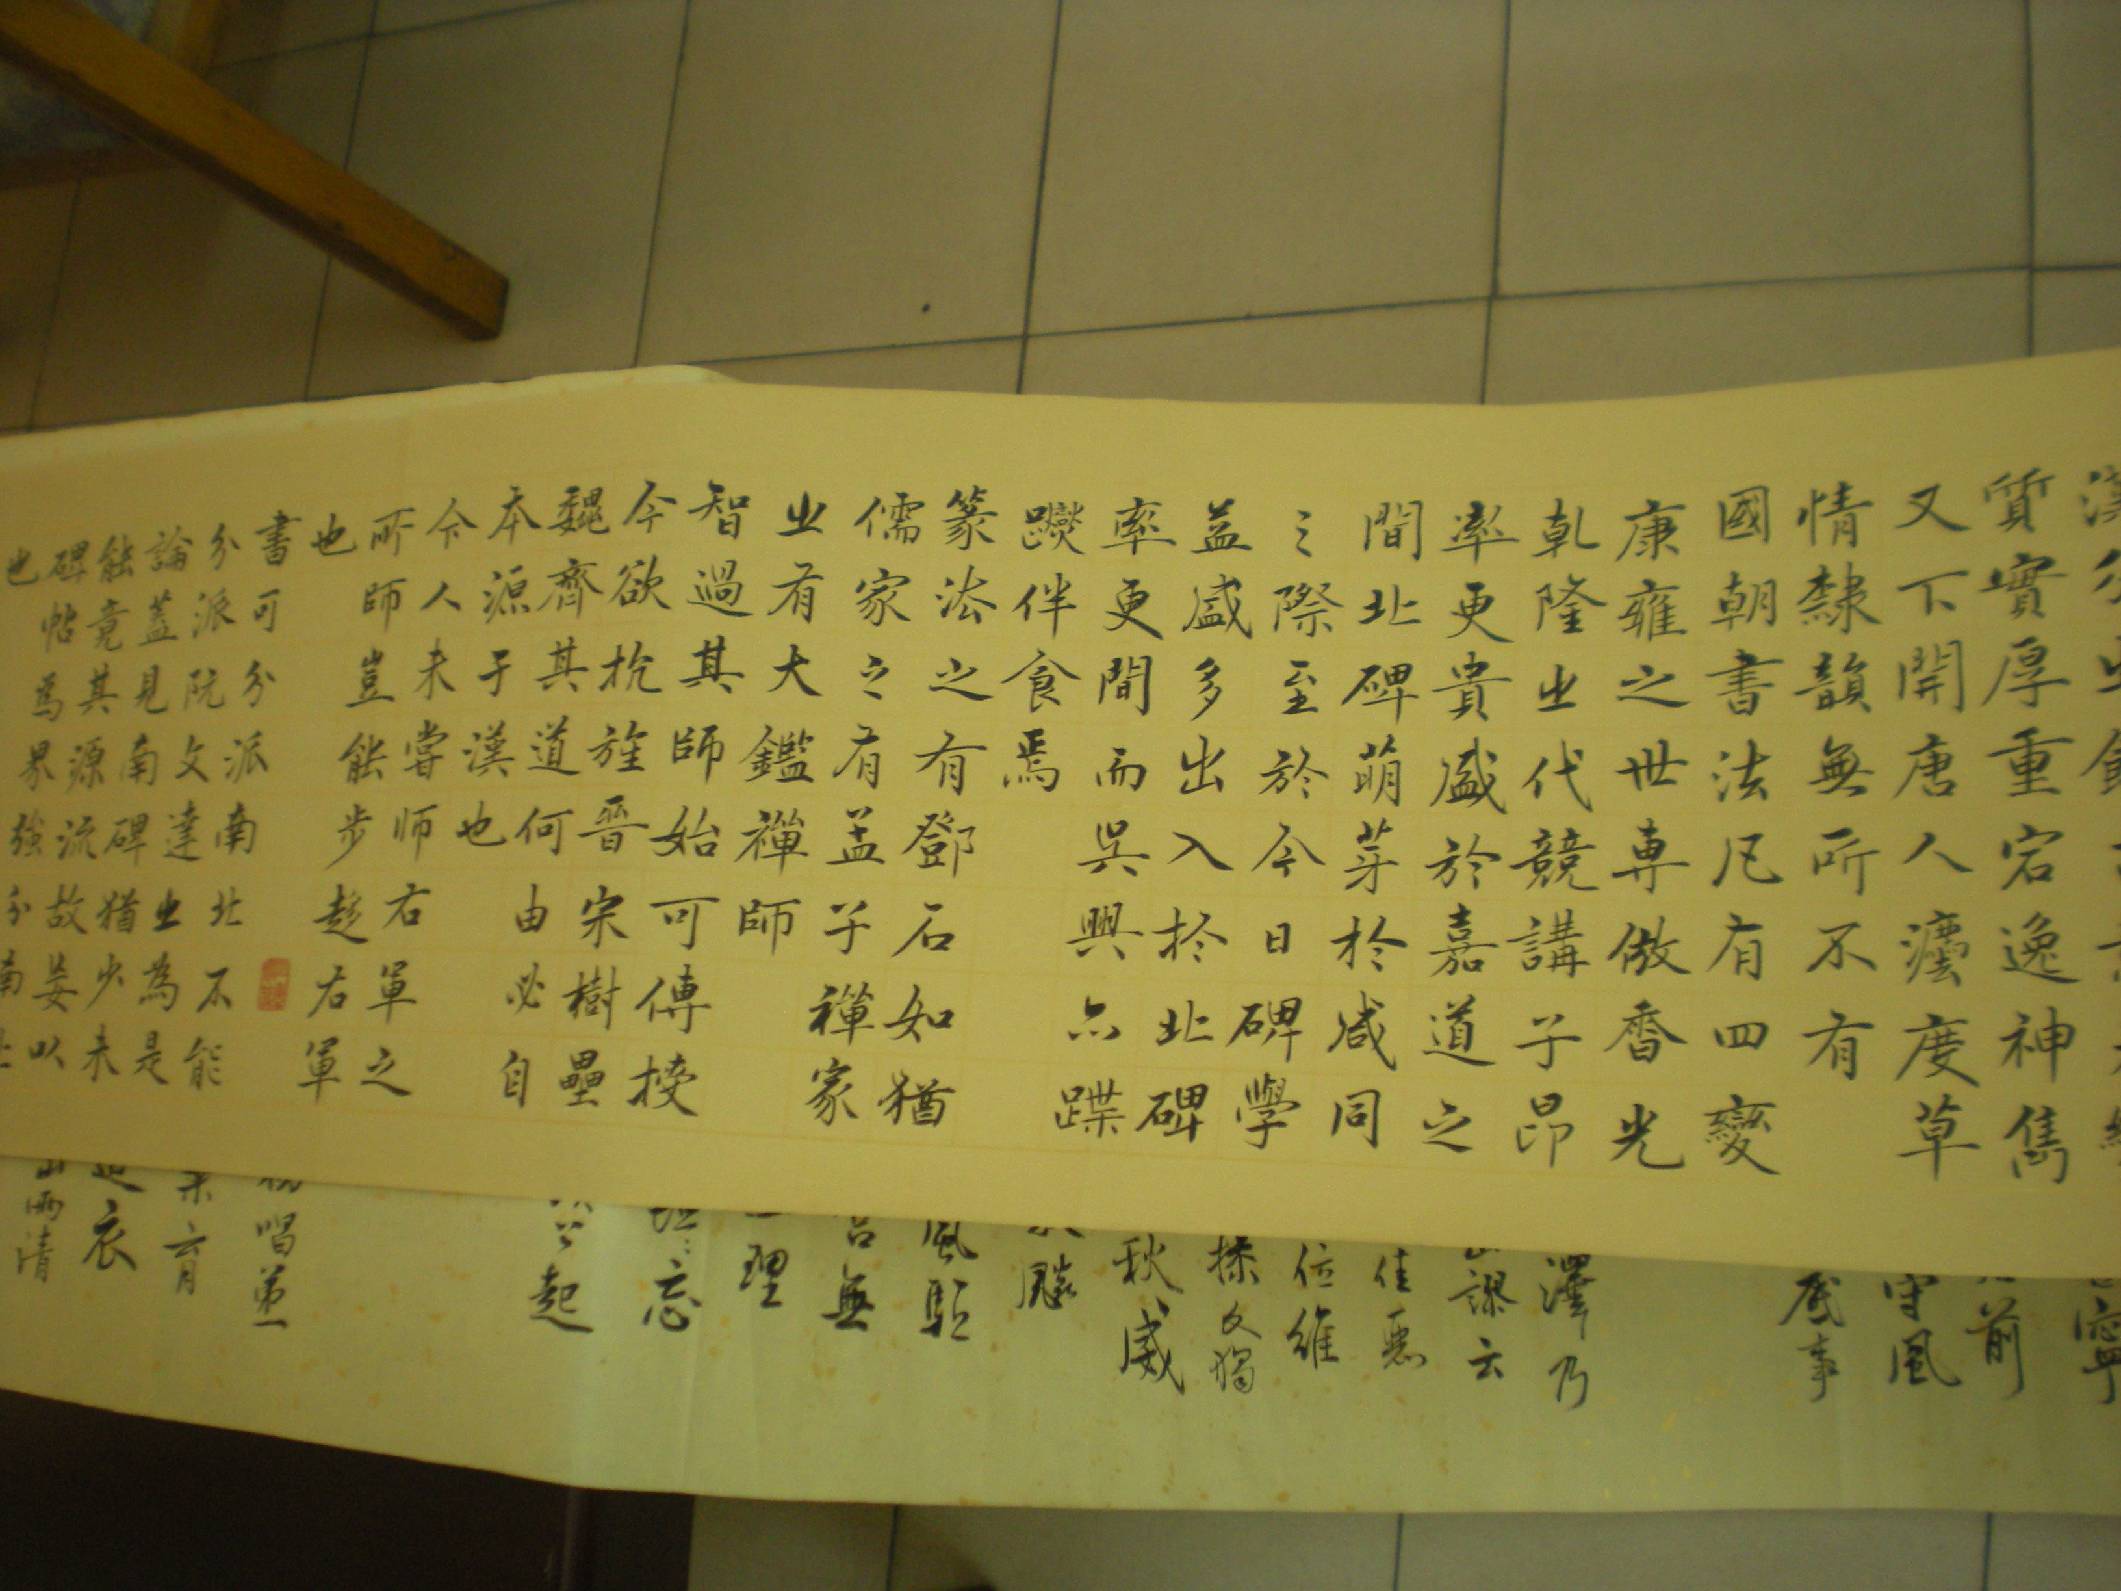 質實厚重宕逸神雋
又下開唐人灋度草
情隸韻無所不有
國朝書法凡有四變
康雍之世専倣香光
乹隆㞢代競講子昂
率更貴盛於嘉道之
間北碑萌芽於咸同
之際至於今日碑學
益盛多出入扵北碑
率更間而吳興亦蹀
躞伴食焉
篆法之有鄧石如猶
儒家之有孟子禪家
㞢有大鑑禪師
智過其師始可傳授
今欲抗旌晉宋樹壘
魏齊其道何由必自
本源于漢也
今人未嘗师右軍之
所師豈能步趍右軍
也
書可分派南北不能
分派阮文達㞢為是
論蓋見南碑猶少未
能竟其源流故妄以
碑帖為界強分南北
也
澤乃
謬云
佳惡
位維
操文獨
秋威
飈
風駈
無
理
忘
起
唱第一
衣
雨清
感事
守風
前
寧